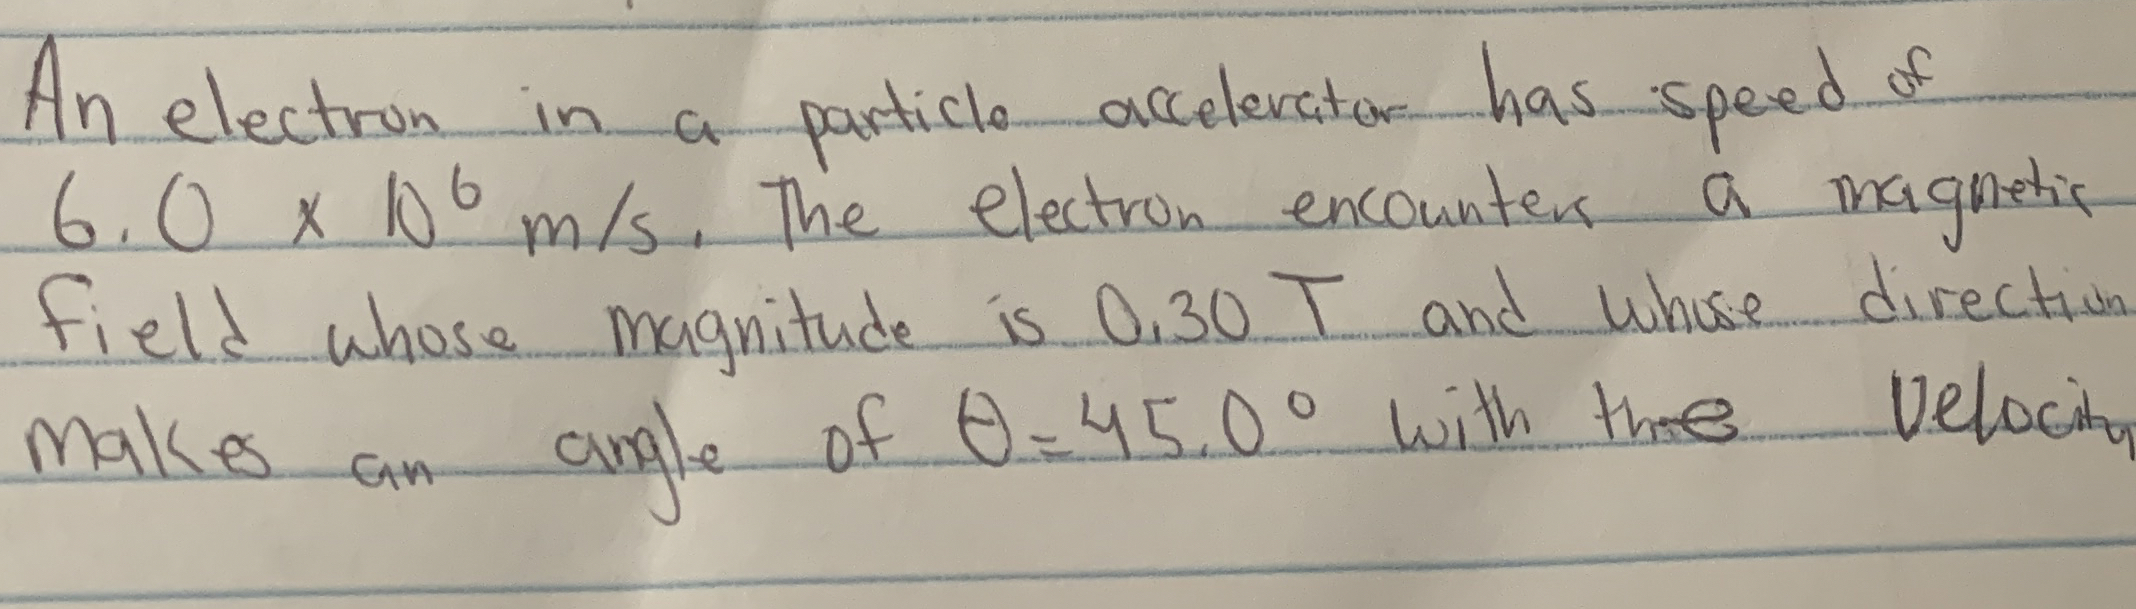 An electron in a particle accelerator has speed of
6.0 x 10⁶ m/s. The electron encounters a magnetic
field whose magnitude is 0.30 T and whose direction
makes an angle of θ = 45.0° with the velocity